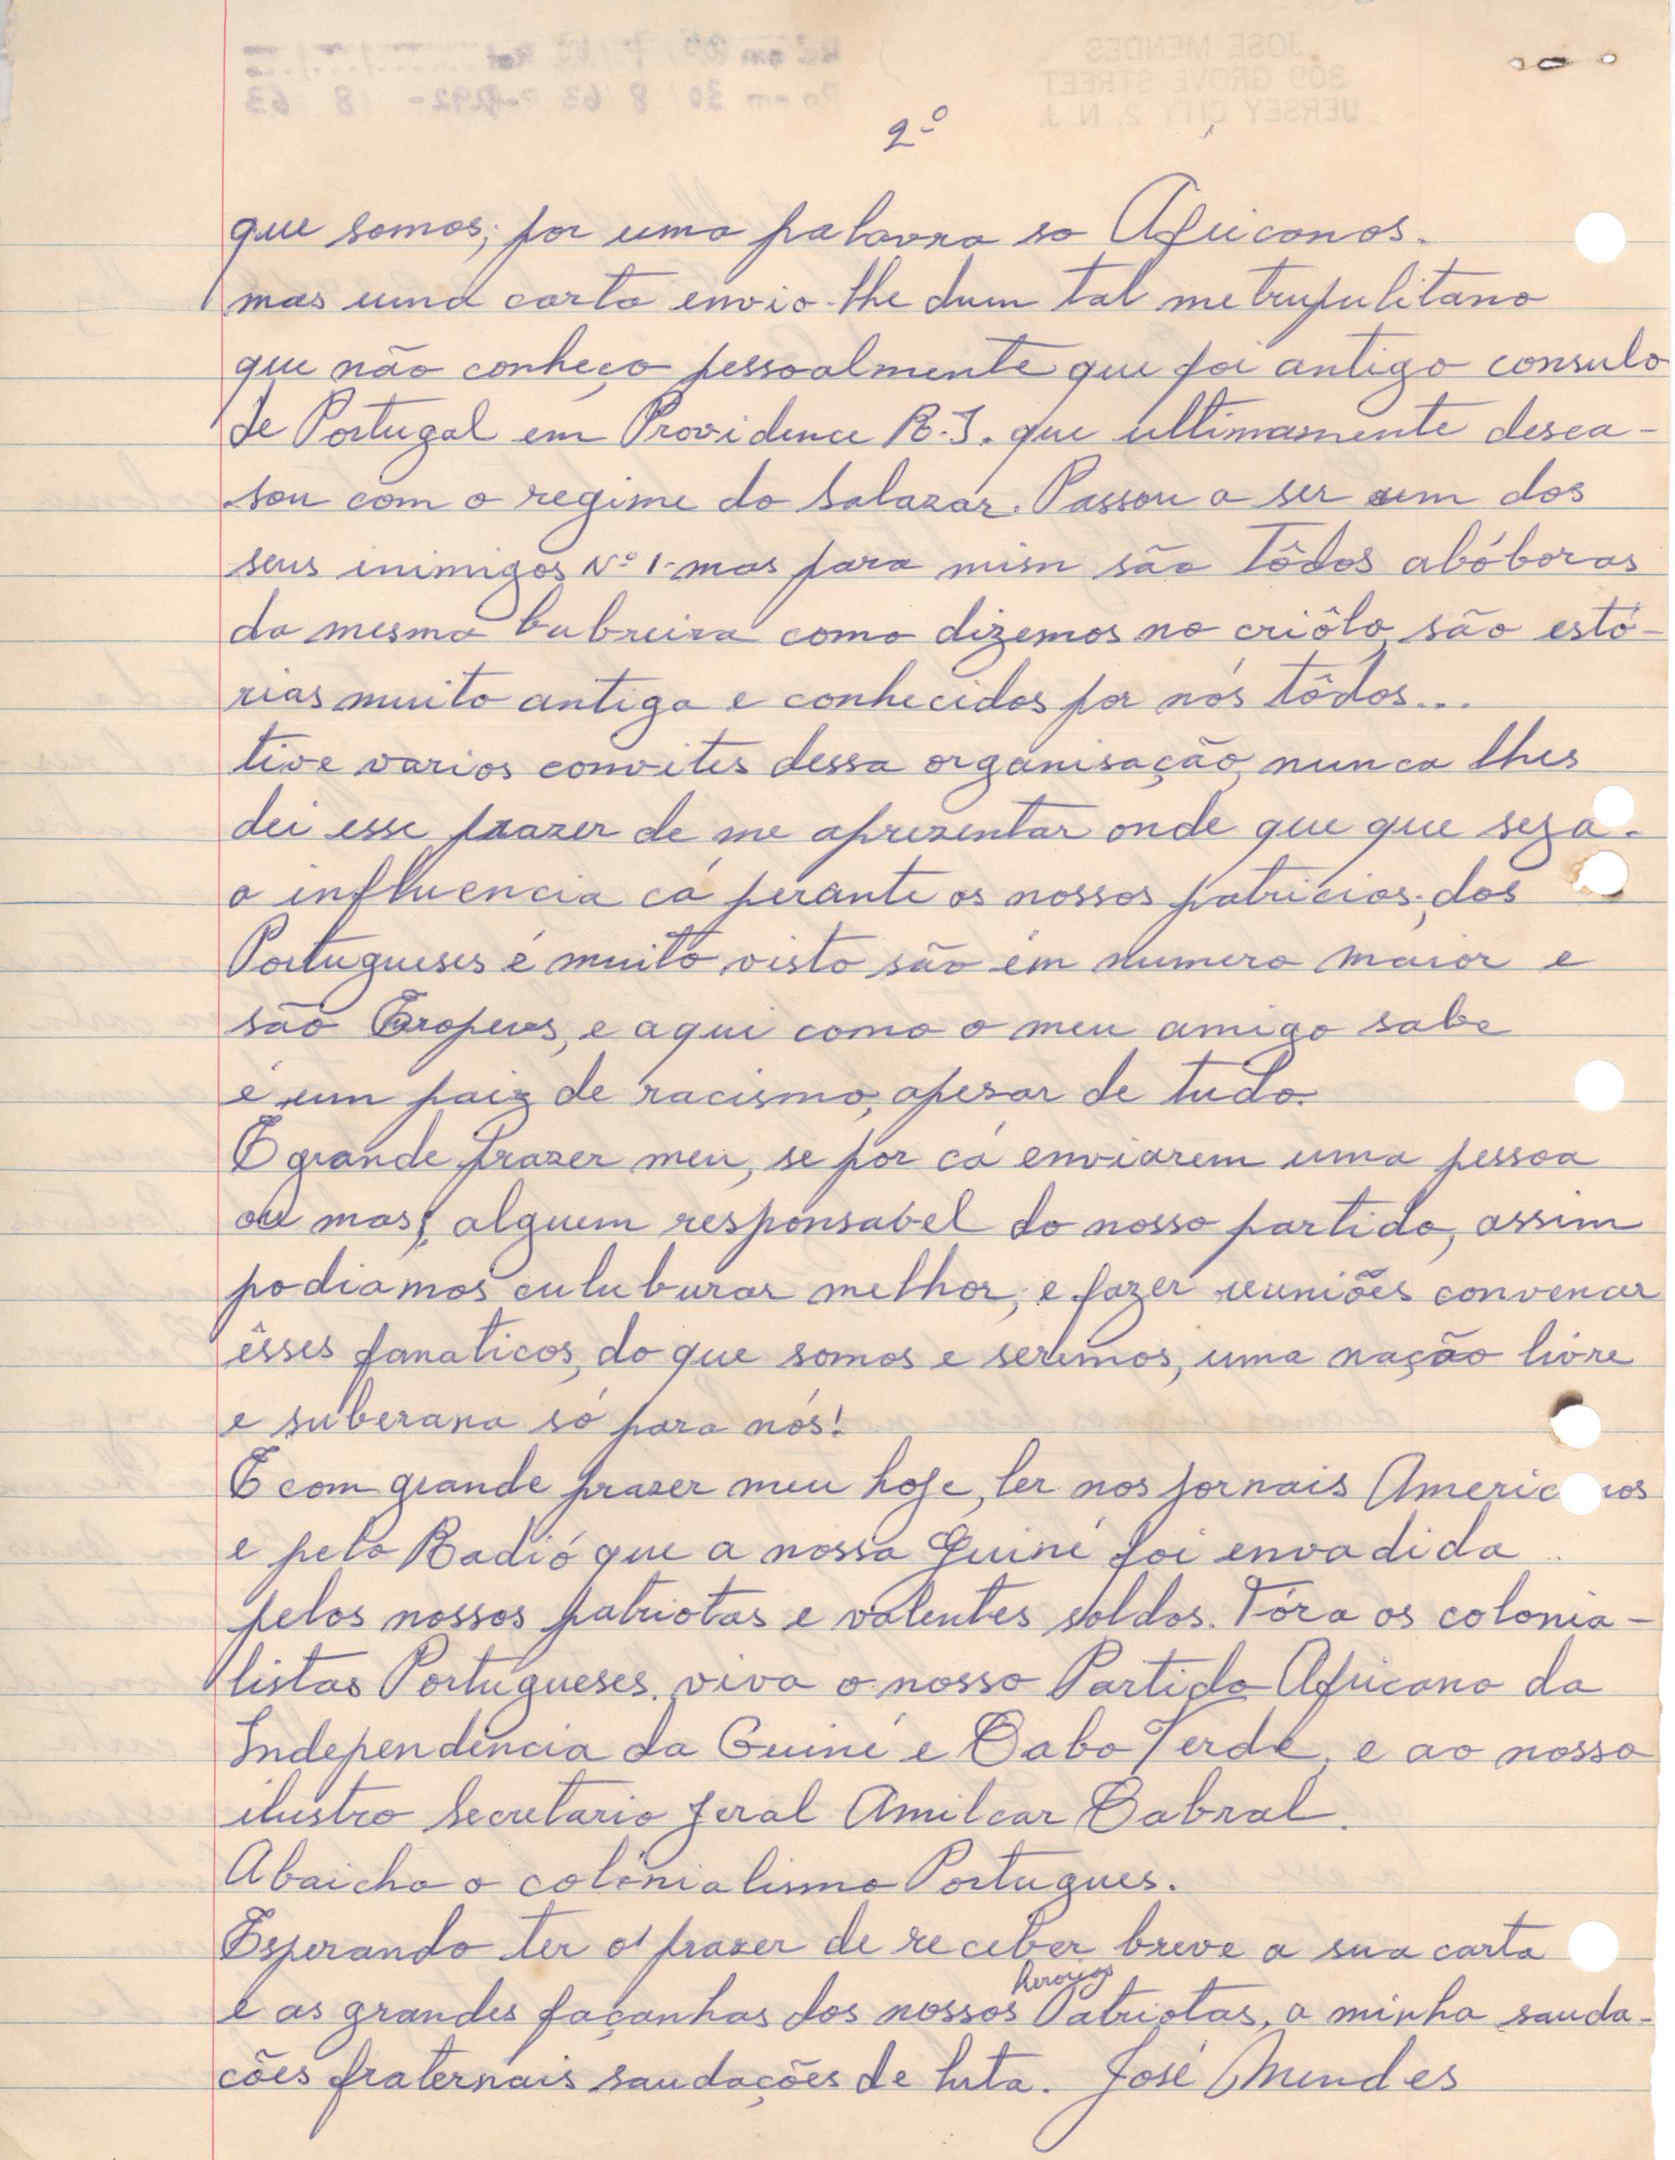 2º
que somos; por uma palavra so Africanos.
mas uma carta envio-lhe dum tal metrupulitano
que não conheço pessoalmente que foi antigo consulo
de Portugal em Providence R.I. que ultimamente desca-
sou com o regime do Salazar. Passou a ser um dos
seus inimigos Nº 1. mas para mim são tôdos abóboras
da mesma bubreira como dizemos no criôlo, são estó-
rias muito antiga e conhecidos por nós tôdos...
tive varios convites dessa organisação, nunca lhes
dei esse prazer de me aprezentar onde que que seza.
a influencia cá perante os nossos patricios; dos
Portugueses é muito visto são em numero maior e
são Eropeus, e aqui como o meu amigo sabe
é um paiz de racismo, apesar de tudo.
E grande prazer meu, se por cá enviarem uma pessoa
ou mas; alguem responsabel do nosso partido, assim
podiamos culuburar melhor; e fazer reuniões convencer
êsses fanaticos, do que somos e seremos, uma nação livre
e suberana só para nós!
E com grande prazer meu hoje, ler nos jornais Americanos
e pelo Radió que a nossa Guiné foi envadida
pelos nossos patriotas e valentes soldos. Fóra os colonia-
listas Portugueses. viva o nosso Partido Africano da
Independência da Guiné e Cabo Verde, e ao nosso
ilustro Secretario jeral Amilcar Cabral.
Abaicho o colónialismo Portugues.
Esperando ter o prazer de receber breve a sua carta
e as grandes façanhas dos nossos heroijos Patriotas, a minha sauda-
cões fraternais saudações de luta. José Mendes
JOSE MENDES
309 GROVE STREET
JERSEY CITY 2, N. J.